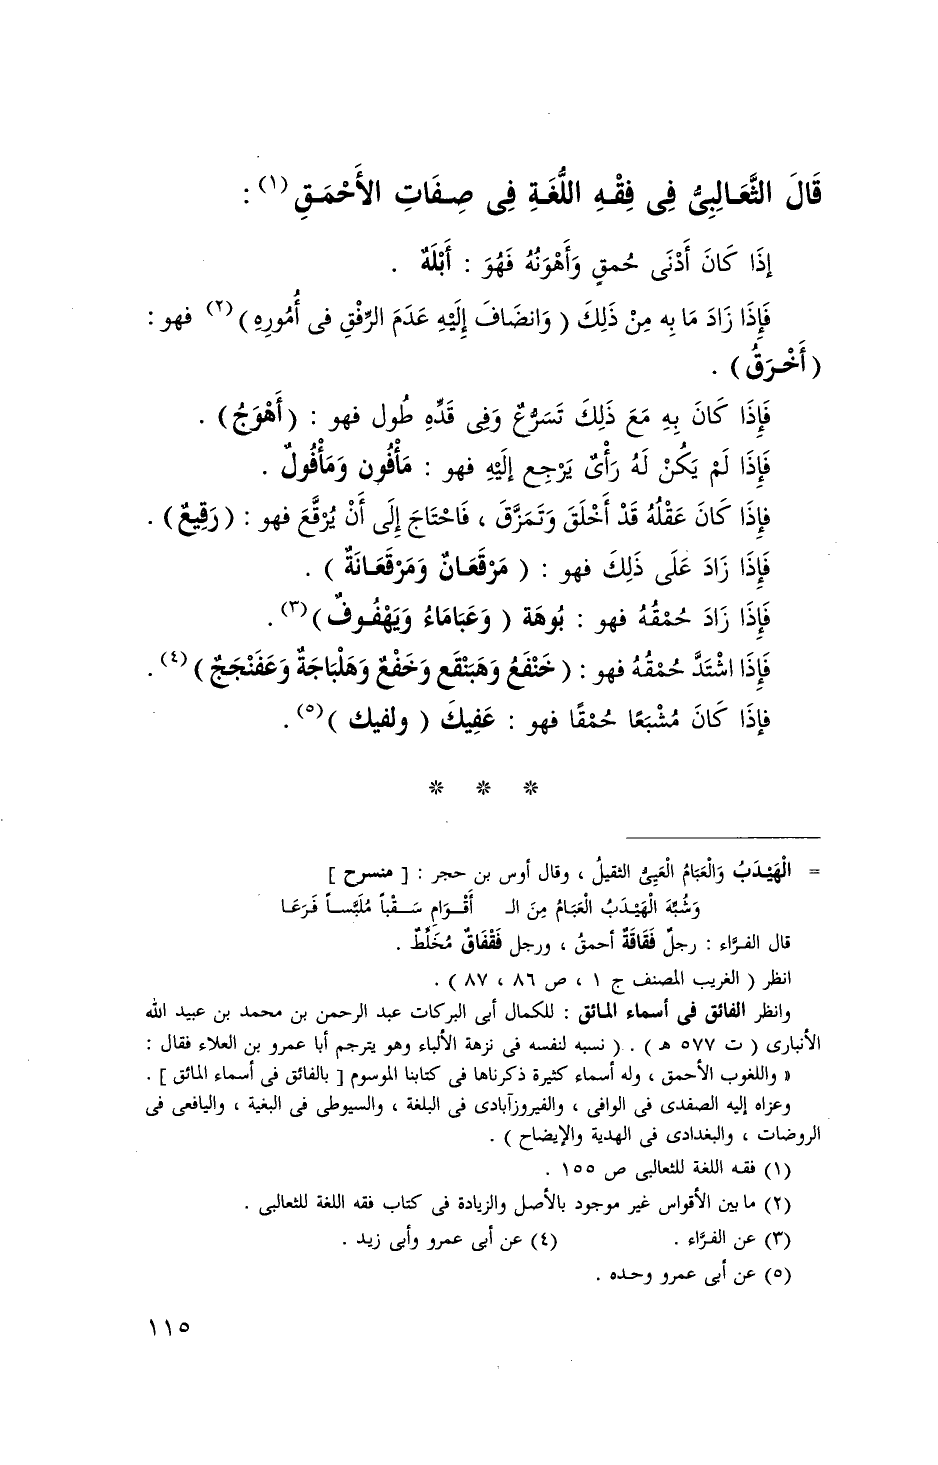 قَالَ الثَّعَالِبِىُّ فِى فِقْهِ اللُّغَةِ فِى صِفَاتِ الأَحْمَقِ (١) :
إذَا كَانَ أَدْنَى حُمقٍ وَأَهْوَنُهُ فَهُوَ : أَبْلَهٌ .
فَإِذَا زَادَ مَا بِه مِنْ ذَلِكَ ( وَانضَافَ إِلَيْهِ عَدَمَ الرِّفْقِ فى أُمُورِهِ ) (٢) فهو :
( أَخْرَقُ ) .
فَإِذَا كَانَ بِهِ مَعَ ذَلِكَ تَسَرُّعٌ وَفِى قَدِّهِ طُول فهو : ( أَهْوَجُ ) .
فَإِذَا لَمْ يَكُنْ لَهُ رَأْىٌ يَرْجِع إلَيْهِ فهو : مَأْفُون وَمَأْفُولٌ .
فإِذَا كَانَ عَقْلُهُ قَدْ أَخْلَقَ وَتَمَزَّقَ ، فَاحْتَاجَ إِلَى أَنْ يُرْقَّعَ فهو : ( رَقِيعٌ ) .
فَإِذَا زَادَ عَلَى ذَلِكَ فهو : ( مَرْقَعَانٌ وَمَرْقَعَانَةٌ ) .
فَإِذَا زَادَ حُمْقُهُ فهو : بُوهَة ( وَعَبَامَاءُ وَيَهْفُوفٌ ) (٣) .
فَإِذَا اشْتَدَّ حُمْقُهُ فهو : ( خَنْفَعُ وَهَبَنْقَع وَخَفْعٌ وَهَلْبَاجَةٌ وَعَفَنْجَجٌ ) (٤) .
فإذَا كَانَ مُشْبَعًا حُمْقًا فهو : عَفِيكَ ( ولفيك ) (٥) .
* * *
= الْهَيْدَبُ وَالْعَبَامُ الْعَيِىُّ الثقيلُ ، وقال أوس بن حجر : [ منسرح ]
وَشُبِّهَ الْهَيْدَبُ الْعَبَامُ مِنَ الـ أَقْـوَامِ سَـقْباً مُلَبَّسـاً فَرَعَـا
قال الفرَّاء : رجلٌ فَقَاقَةٌ أحمقُ ، ورجل فَقْفَاقٌ مُخَلِّطٌ .
انظر ( الغريب المصنف ج ١ ، ص ٨٦ ، ٨٧ ) .
وانظر الفائق فى أسماء المائق : للكمال أبى البركات عبد الرحمن بن محمد بن عبيد الله
الأنبارى ( ت ٥٧٧ هـ ) . ( نسبه لنفسه فى نزهة الألباء وهو يترجم أبا عمرو بن العلاء فقال :
« واللغوب الأحمق ، وله أسماء كثيرة ذكرناها فى كتابنا الموسوم [ بالفائق فى أسماء المائق ] .
وعزاه إليه الصفدى فى الوافى ، والفيروزآبادى فى البلغة ، والسيوطى فى البغية ، واليافعى فى
الروضات ، والبغدادى فى الهدية والإيضاح ) .
(١) فقه اللغة للثعالبى ص ١٥٥ .
(٢) ما بين الأقواس غير موجود بالأصل والزيادة فى كتاب فقه اللغة للثعالبى .
(٣) عن الفرَّاء . (٤) عن أبى عمرو وأبى زيد .
(٥) عن أبى عمرو وحده .
١١٥